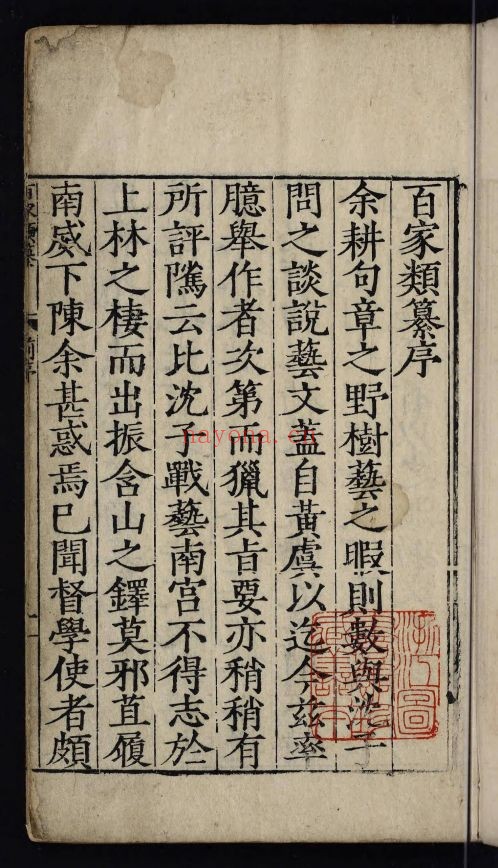 百家類纂序
余耕句章之野樹藝之暇則數與沈子
問之談說藝文蓋自黃虞以迄今茲率
臆舉作者次第而獵其旨要亦稍稍有
所評隲云比沈子戰藝南宮不得志於
上林之棲而出振含山之鐸莫邪苴履
南威下陳余甚惑焉已聞督學使者頗
前序
nayona.cn